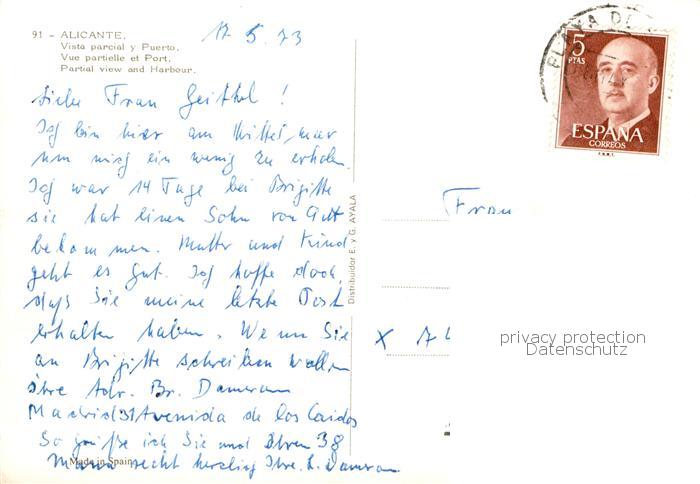 91 - ALICANTE.
Vista parcial y Puerto.
Vue partielle et Port.
Partial view and Harbour.
17.5.73
Liebe Frau !
Ich bin hier am Mittelmeer
um mich ein wenig zu erholen.
Ich war 14 Tage bei Brigitte
sie hat einen Sohn von Gott
bekommen. Mutter und Kind
geht es gut. Ich hoffe doch,
daß Sie meine letzte Post
erhalten haben. Wenn Sie
an Brigitte schreiben wollen
ihre Adr. Br. Dameran
Madrid 31 Avenida de los Caidos
38
So grüße ich Sie und Ihren
Mann recht herzlich Ihre L. Dameran
Made in Spain
Distribuidor E. y G. AYALA
PLAYA DE
5
PTAS
ESPAÑA
CORREOS
Frau
X
privacy protection
Datenschutz